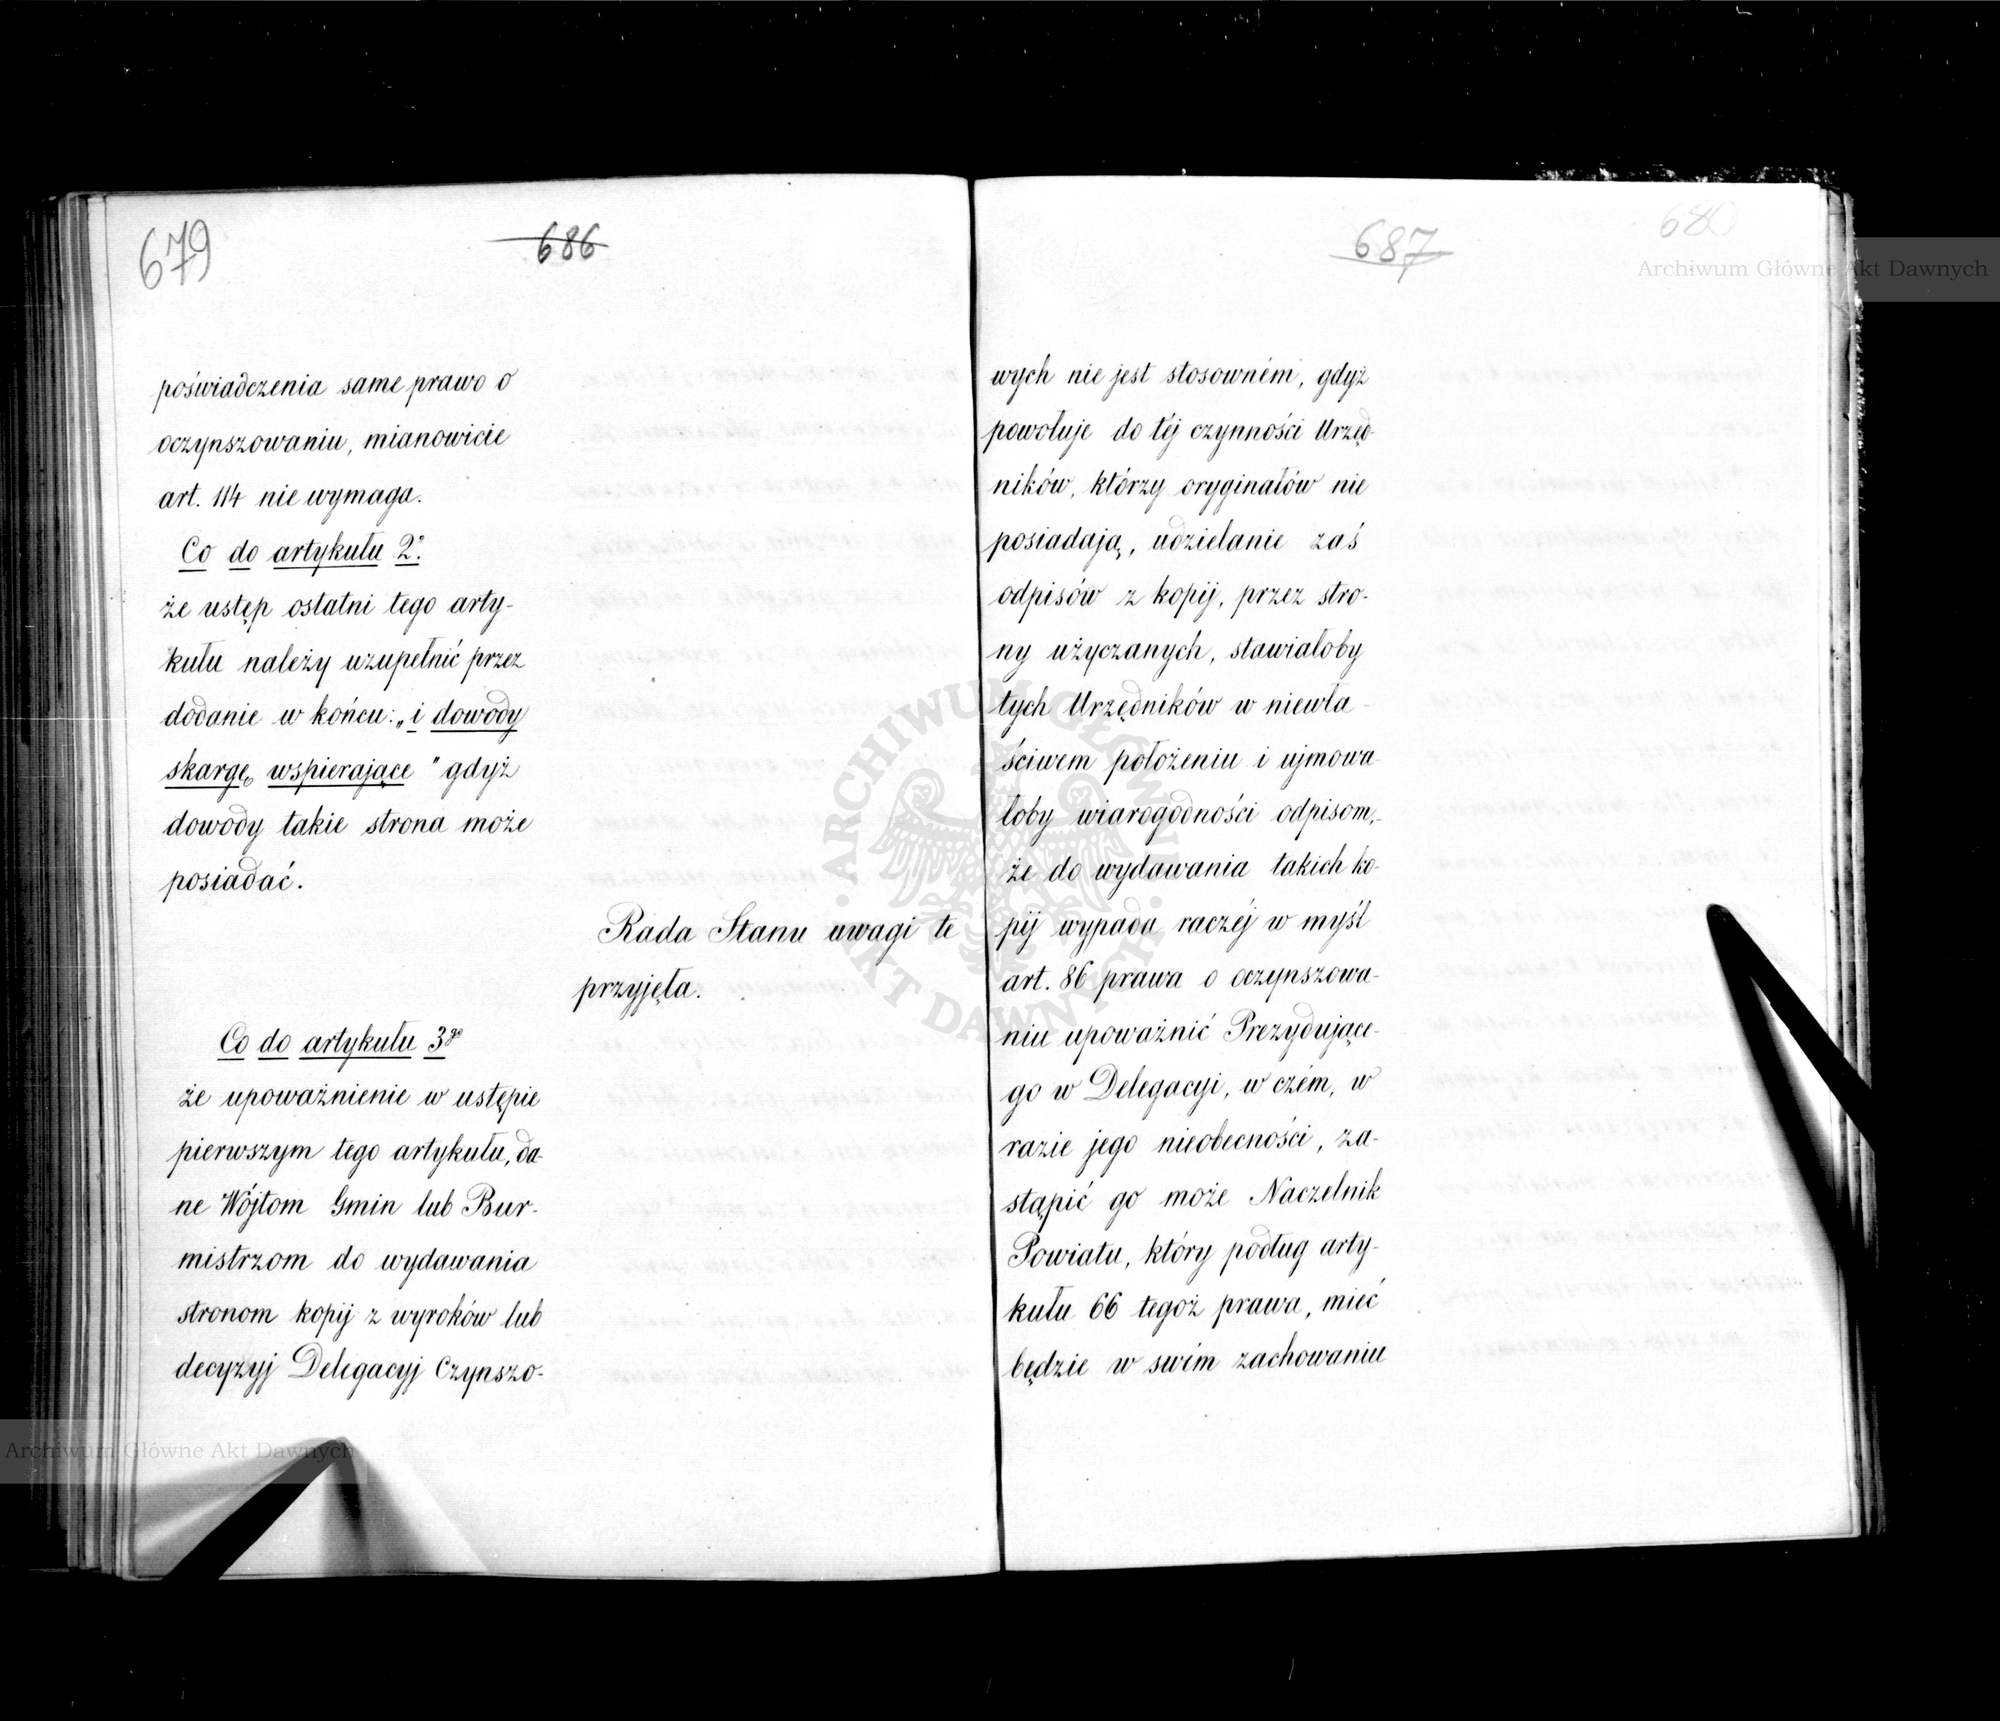 679
686
poświadczenia same prawo o
oczynszowaniu, mianowicie
art. 114 nie wymaga.
Co do artykułu 2º.
że ustęp ostatni tego arty-
kułu należy uzupełnić przez
dodanie w końcu: „i dowody
skargę wspierające" gdyż
dowody takie strona może
posiadać.
Rada Stanu uwagi te
przyjęła.
Co do artykułu 3go
że upoważnienie w ustępie
pierwszym tego artykułu, da-
ne Wójtom Gmin lub Bur-
mistrzom do wydawania
stronom kopij z wyroków lub
decyzyj Delegacyj Czynszo-
687
680
wych nie jest stosowném, gdyż
powołuje do téj czynności Urzęd-
ników, którzy oryginałów nie
posiadają, udzielanie zaś
odpisów z kopij, przez stro-
ny użyczanych, stawiałoby
tych Urzędników w niewła-
ściwem położeniu i ujmowa-
łoby wiarogodności odpisom,-
że do wydawania takich ko-
pij wypada raczéj w myśl
art. 86 prawa o oczynszowa-
niu upoważnić Prezydujące-
go w Delegacyi, w czém, w
razie jego nieobecności, za-
stąpić go może Naczelnik
Powiatu, który podług arty-
kułu 66 tegoż prawa, mieć
będzie w swém zachowaniu
Archiwum Główne Akt Dawnych
ARCHIWUM GŁÓWNE AKT DAWNYCH
Archiwum Główne Akt Dawnych